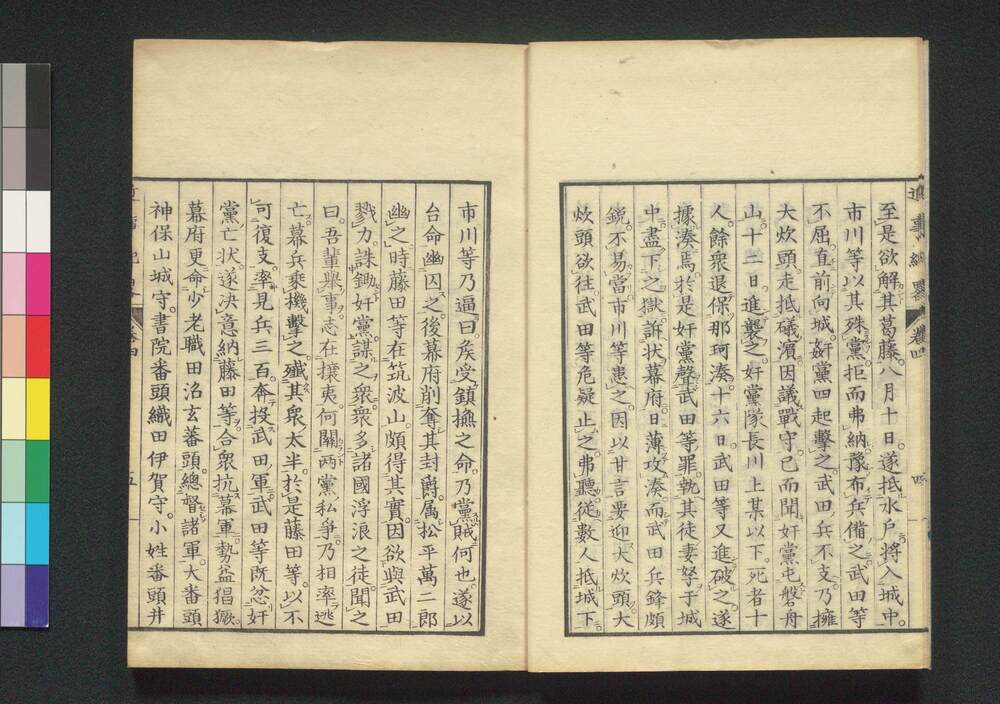 至是欲解其葛藤八月十日遂抵水戶將入城中
市川等以其殊黨拒而弗納豫布兵備之武田等
不屈直前向城奸黨四起擊之武田兵不支乃擁
大炊頭走抵礒濱因議戰守已而聞奸黨屯磐舟
山十二日進襲之奸黨隊長川上某以下死者十
人餘衆退保那珂湊十六日武田等又進破之遂
據湊焉於是奸黨聲武田等罪執其徒妻孥于城
中盡下之獄訴狀幕府日薄攻湊而武田兵鋒頗
銳不易當市川等患之因以甘言要迎大炊頭大
炊頭欲往武田等危疑止之弗聽從數人抵城下
市川等乃逼曰矦受鎮撫之命乃黨賊何也遂以
台命幽囚之後幕府削奪其封爵属松平萬二郎
幽之時藤田等在筑波山頗得其實因欲與武田
戮力誅鋤奸黨謀之衆衆多諸國浮浪之徒聞之
曰吾輩舉事志在攘夷何關兩黨私爭乃相率逃
亡幕兵乘機擊之殲其衆太半於是藤田等以不
可復支率見兵三百奔投武田軍武田等既忿奸
黨亡狀遂決意納藤田等合衆抗幕軍勢益猖獗
幕府更命少老職田沼玄蕃頭總督諸軍大番頭
神保山城守書院番頭織田伊賀守小姓番頭井
五